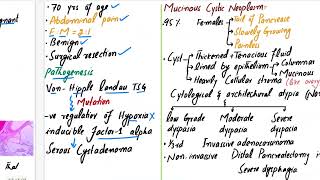 gnant
• 70 yrs of age
• Abdominal pain
• F:M = 2:1
• Benign
• Surgical resection
Pathogenesis
Von-Hipple landau TSG
Mutation
-ve regulator of Hypoxia x
inducible factor-1 alpha
Serous Cystadenoma
Mucinous Cystic Neoplasm
95% Females
Tail of Pancreas
Slowely Growing
Painless
Cyst
Thickened + Tenacious fluid
lined by epithelium
Columnar
Mucinous
Heavily Cellular stroma
Cytological & architectural atypia
low Grade
dyspasia
Moderate
dyspasia
Severe
dyspasia
• 1/3rd Invasive adenocarcinoma
• Non-invasive Distal Pancreatectomy
Severe dysphagia